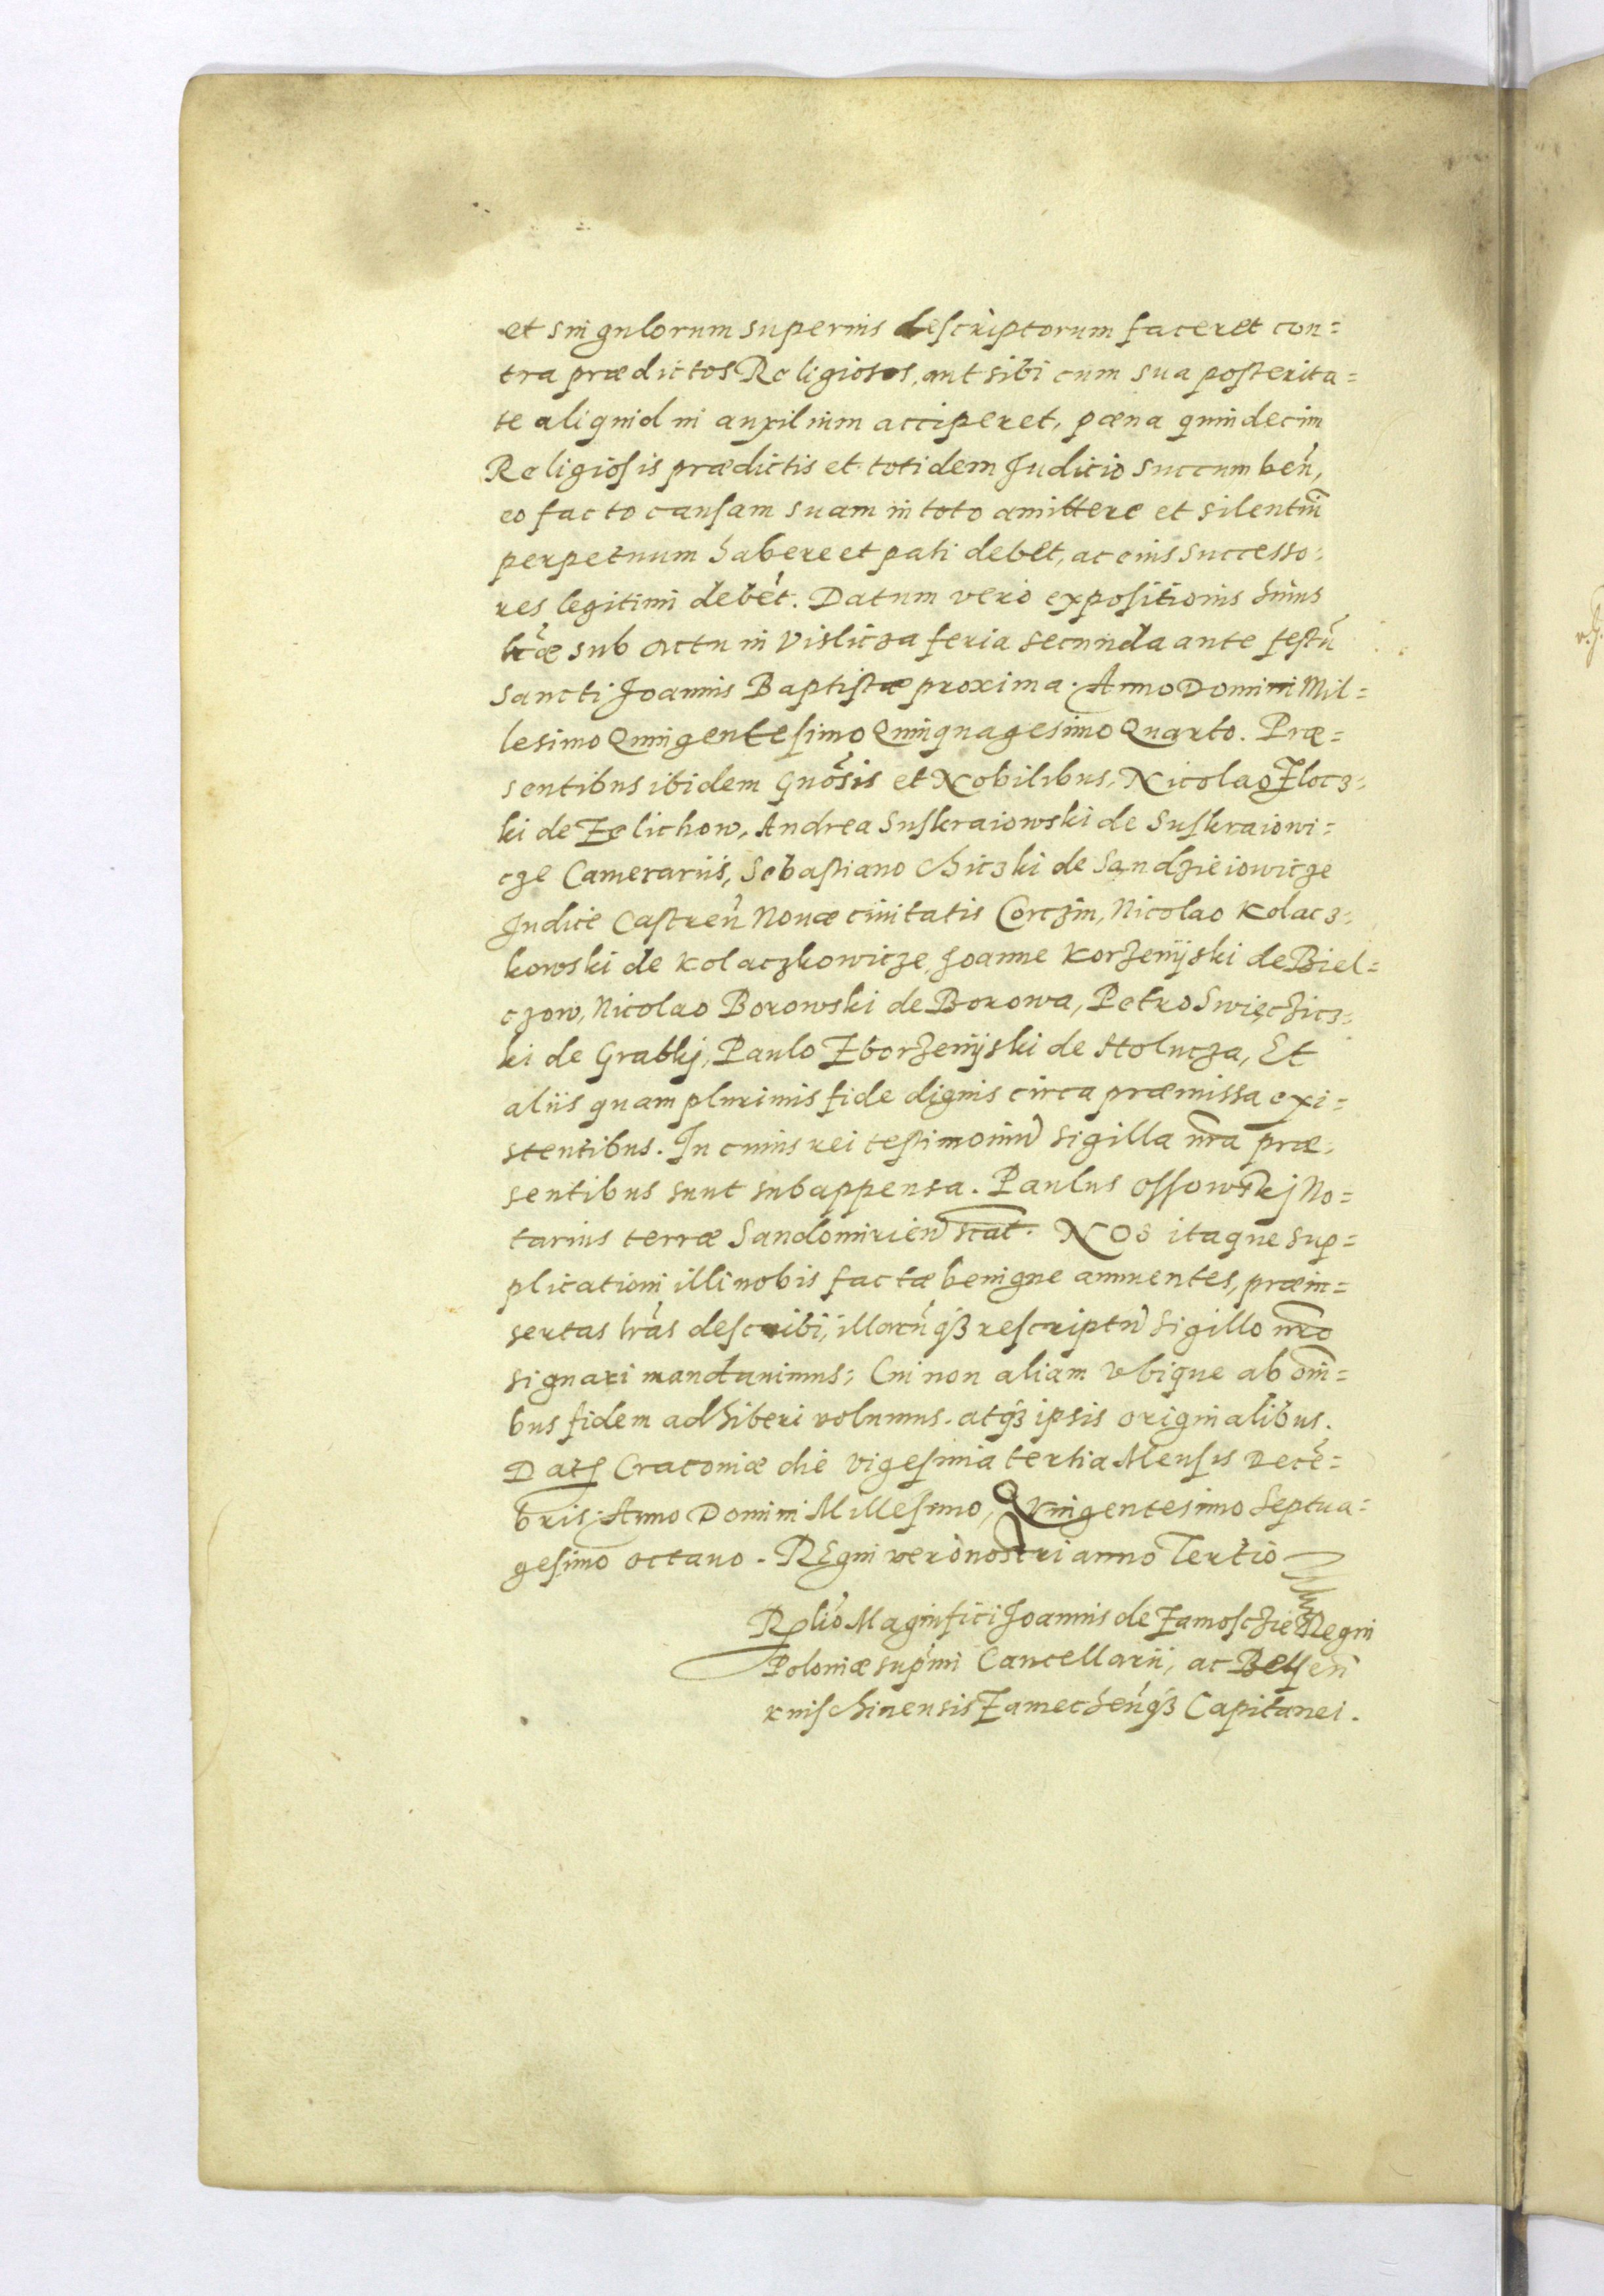 et singulorum superius descriptorum faceret con=
tra prædictos Religiosos, aut sibi cum sua posterita=
te aliquid in auxilium acciperet, pœna quindecim
Religiosis prædictis et totidem Judicio succumbeñ,
eo facto causam suam in toto amittere et silentiū
perpetuum habere et pati debet, ac eius successo=
res legitimi debēt. Datum vero expositionis huius
lr̃æ sub actu in Vislicza feria secunda ante festū
Sancti Joannis Baptistæ proxima. Anno Domini Mil=
lesimo Quingentesimo Quinquagesimo Quarto. Præ=
sentibus ibidem Gnōsis et Nobilibus, Nicolao Zlocz=
ki de Zelichow, Andrea Suskraiowski de Suskraiowi=
cze Camerariis, Sebastiano Chiczki de Sandzieiowicze
Judice Castreñ Nouæ ciuitatis Corczin, Nicolao Kolacz=
kowski de Kolaczkowicze, Joanne Korzenijski de Biel=
czow, Nicolao Borowski de Borowa, Petro Swięczicz=
ki de Grabkj, Paulo Zborzenijski de Stolucza, Et
aliis quam plurimis fide dignis circa præmissa exi=
stentibus. In cuius rei testimoniū sigilla nr̃a præ=
sentibus sunt subappensa. Paulus Ossowskj No=
tarius terræ Sandomirieñ scāt. NOS itaque sup=
plicationi illi nobis factæ benigne annuentes, præin=
sertas lr̃as describi, illorūq3 rescriptū sigillo nr̃o
signari mandauimus; Cui non aliam vbique ab om̄i=
bus fidem adhiberi volumus, atq3 ipsis originalibus.
Datȩ Cracouiæ die vigesima tertia Mensis Decē=
bris, Anno Domini Millesimo, Quingentesimo Septua=
gesimo octauo. REgni vero nostri anno Tertio
Rel̃io Magnifici Joannis de Zamosczie Regni
Poloniæ supr̃mi Cancellarii, ac Belseñ
Knischinensis Zamecheñq3 Capitanei.